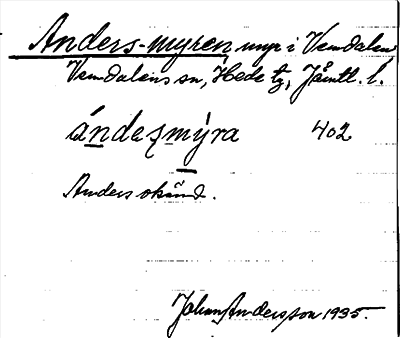 Anders-myren myr i Vemdalen
Vemdalens sn, Hede tg, Jämtl. l.
ándesmýra 402
Anders okänd.
Johan Andersson 1935.